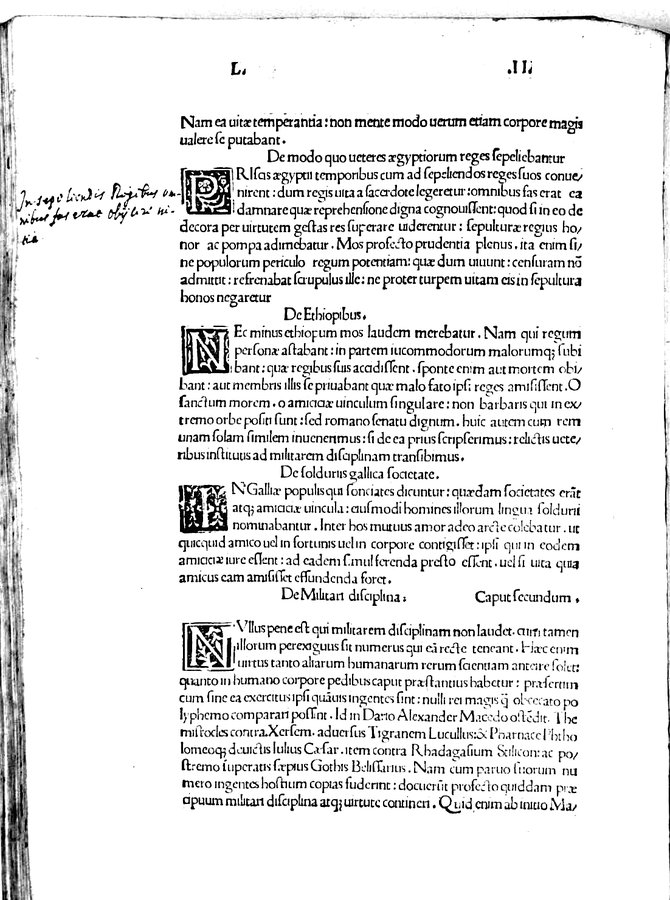 L. .II.
Nam ea uitæ temperantia : non mente modo uerum etiam corpore magis
ualere se putabant .
De modo quo ueteres ægyptiorum reges sepeliebantur
PRIscas ægyptii temporibus cum ad sepeliendos reges suos conue/
nirent : dum regis uita a sacerdote legeretur : omnibus fas erat ea
damnare quæ reprehensione digna cognouissent: quod si in eo de
decora per uirtutem gestas res superare uiderentur : sepulturæ regius ho/
nor ac pompa adimebatur . Mos profecto prudentia plenus . ita enim si/
ne populorum periculo regum potentiam: quæ dum uiuunt : censuram nō
admittit : refrenabat scrupulus ille: ne propter turpem uitam eis in sepultura
honos negaretur
In sepeliendis Regibus om-
nibus fas erat obijcere ui-
tia
De Ethiopibus .
NEc minus ethiopum mos laudem merebatur . Nam qui regum
personæ astabant : in partem incommodorum malorumq; subi
bant : quæ regibus suis accidissent . sponte enim aut mortem obi/
bant : aut membris illis se priuabant quæ malo fato ipsi reges amisissent . O
sanctum morem . o amiciciæ uinculum singulare : non barbaris qui in ex/
tremo orbe positi sunt : sed romano senatu dignum . huic autem cum rem
unam solam similem inuenerimus : si de ea prius scripserimus : relictis uete/
ribus institutis ad militarem disciplinam transibimus .
De solduriis gallica societate .
IN Galliæ populis qui sonciates dicuntur : quædam societates erāt
atq; amiciciæ uincula : eiusmodi homines illorum lingua soldurii
nominabantur . Inter hos mutuus amor adeo arcte colebatur . ut
quicquid amico uel in fortunis uel in corpore contigisset : ipsi qui in eodem
amiciciæ iure essent : ad eadem simul ferenda presto essent . uel si uita quia
amicus eam amisisset effundenda foret .
De Militari disciplina : Caput secundum .
NVllus pene est qui militarem disciplinam non laudet . cum tamen
illorum perexiguus sit numerus qui eā recte teneant . Hæc enim
uirtus tanto aliarum humanarum rerum scientiam anteire solet:
quanto in humano corpore pedibus caput præstantius habetur : præsertim
cum sine ea exercitus ipsi quāuis ingentes sint : nulli rei magis q̄ obcecato po
lyphemo comparari possint . Id in Dario Alexander Macedo ostēdit . The
mistocles contra . Xersem . aduersus Tigranem Lucullus: & Pharnace Ptho
lomeoq; deuictis Iulius Cæsar . item contra Rhadagasium Stilicon: ac po/
stremo superatis sæpius Gothis Belissarius . Nam cum paruo suorum nu
mero ingentes hostium copias fuderint : docuerūt profecto quiddam præ
cipuum militari disciplina atq; uirtute contineri . Quid enim ab initio Ma/